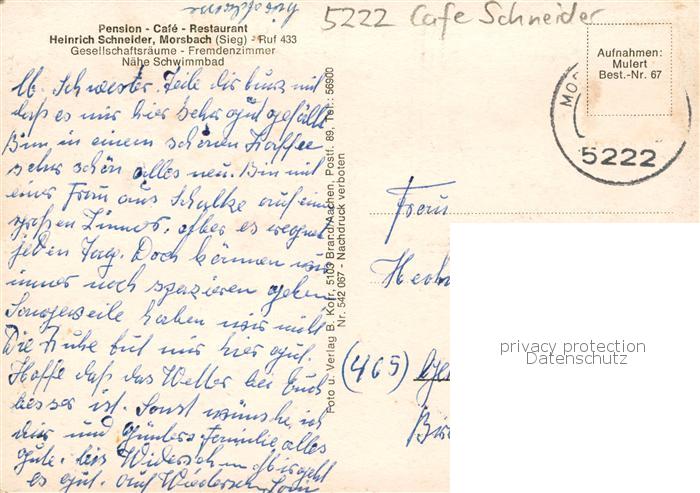 5222 Cafe Schneider
Pension - Café - Restaurant
Heinrich Schneider, Morsbach (Sieg) - Ruf 433
Gesellschaftsräume - Fremdenzimmer
Nähe Schwimmbad
Lb. Schwester. Teile dir kurz mit
daß es mir hier sehr gut gefällt
Binn in einem schönen Kaffee
sehr schön alles neu. Bin mit
einer Frau aus Schalke auf ein
großen Zimmer, aber es regnet
jeden Tag. Doch können wir
immer noch spazieren gehen
Langeweile haben wir nicht
Die Ruhe tut mir hier gut.
Hoffe daß das Wetter bei Euch
besser ist. Sonst wünsche ich
dir und Günters Familie alles
gute. bis Wiedersehn
es gut. auf Wiedersehn
Foto u. Verlag B. Korr, 5103 Brand/Aachen, Postf. 89, Tel.: 56900
Nr. 542 067 - Nachdruck verboten
Aufnahmen:
Mulert
Best.-Nr. 67
MO
5222
Frau
(465)
privacy protection
Datenschutz